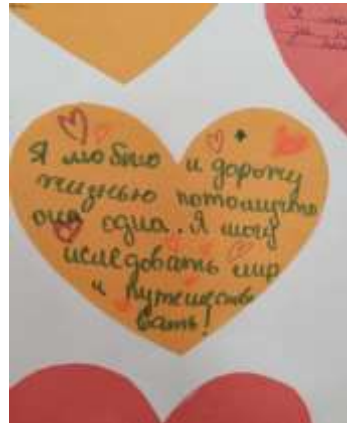 Я люблю и дорожу
жизнью потомучто
она одна. Я могу
иследовать мир
и путешество
вать!